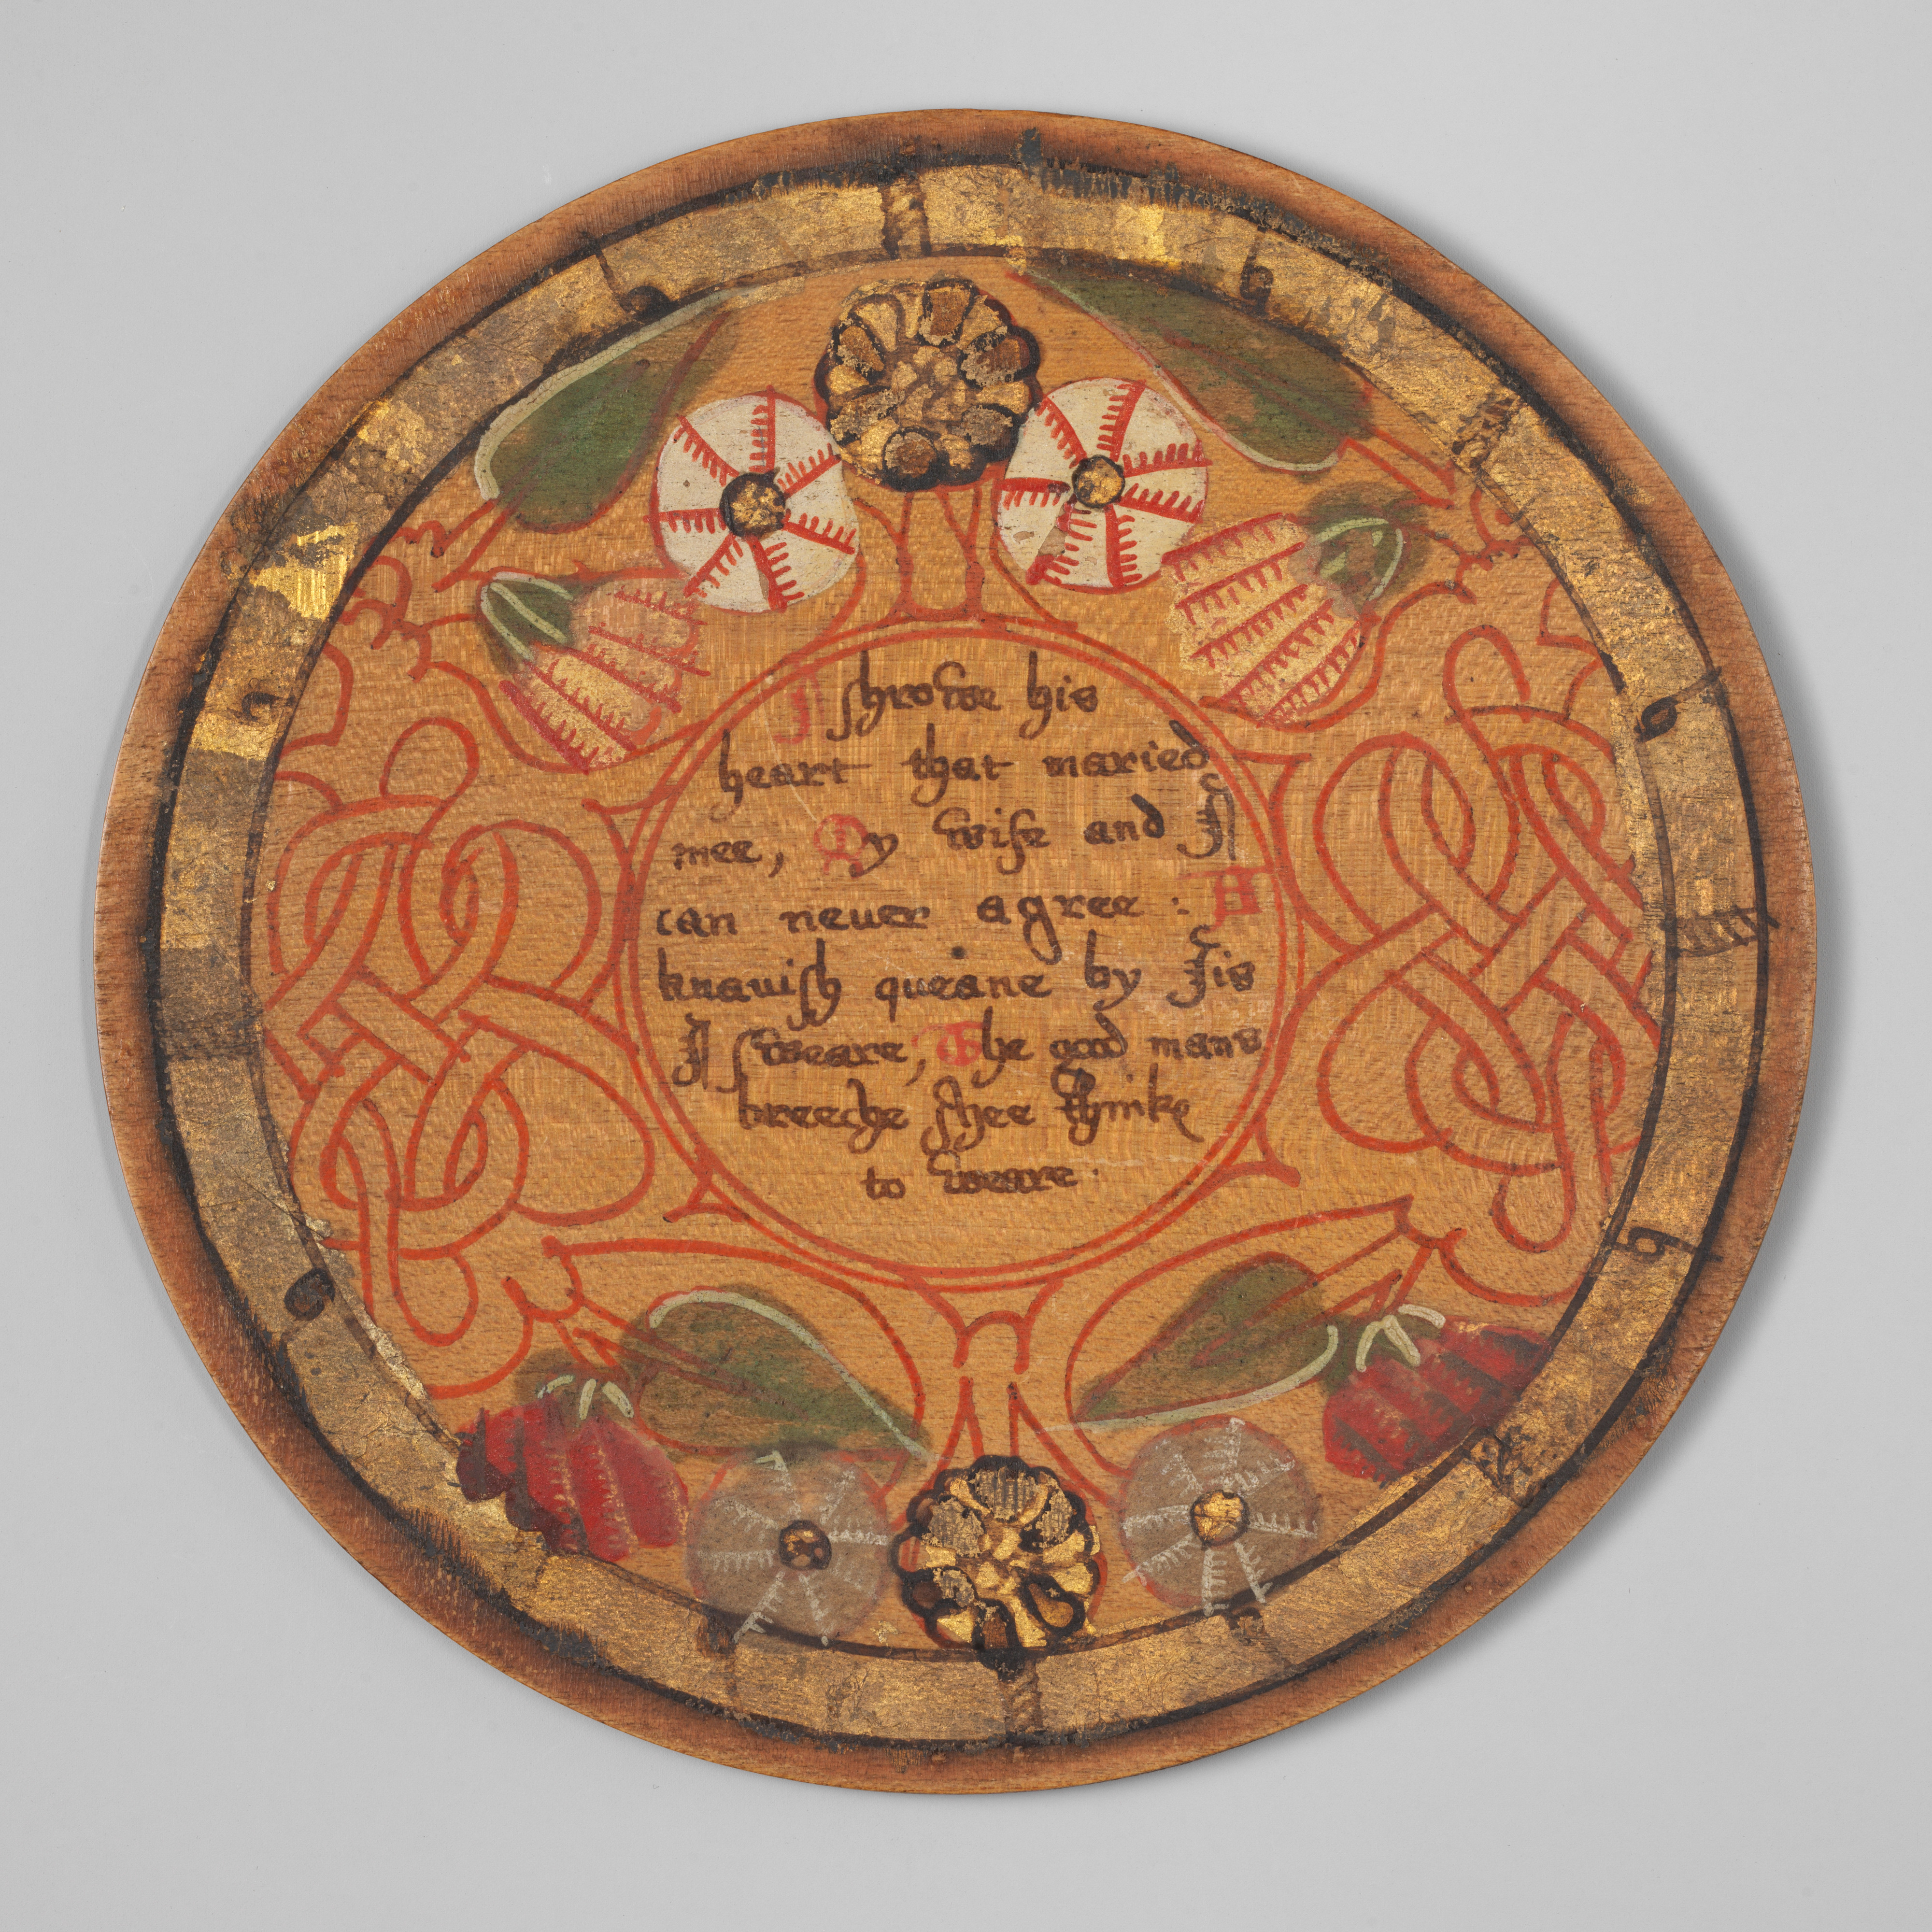 I shrowe his
heart that maried
mee, My wife and I
can neuer agree : A
knauish queane by Jis
I sweare, The good mans
breeche shee thinke
to weare .